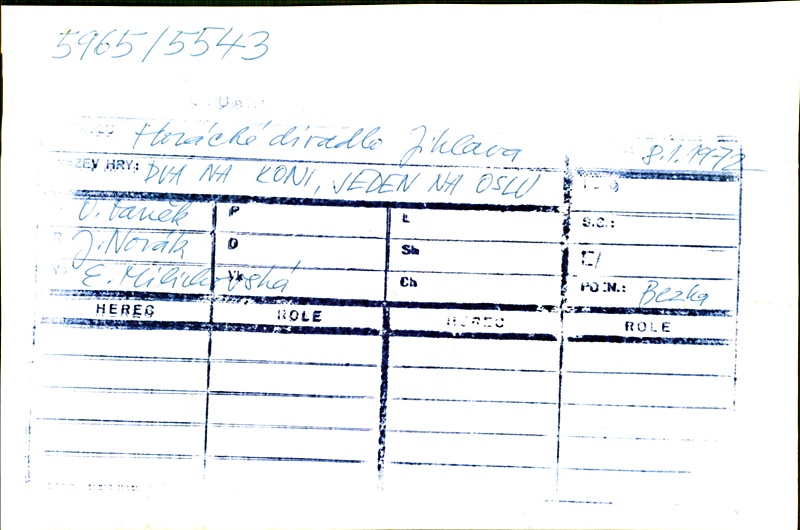 5965/5543
Horácké divadlo Jihlava 8.1.1972
NÁZEV HRY: DVA NA KONI, JEDEN NA OSLU
O. Daněk P L S.G.:
J. Novák O Sh
E. Milichovská Vk Ch POZN.: Bezka
HEREC ROLE HEREC ROLE